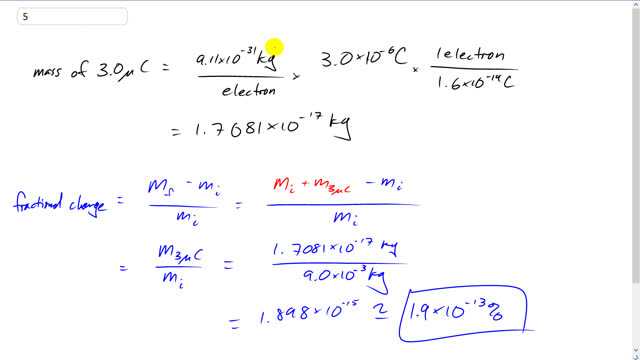 5
mass of 3.0μC = 9.11×10⁻³¹kg / electron × 3.0×10⁻⁶C × 1 electron / 1.6×10⁻¹⁹C
= 1.7081×10⁻¹⁷ kg
fractional change = m_f − m_i / m_i = m_i + m_3μC − m_i / m_i
= m_3μC / m_i = 1.7081×10⁻¹⁷ kg / 9.0×10⁻³kg
= 1.898×10⁻¹⁵ ≃ 1.9×10⁻¹³%